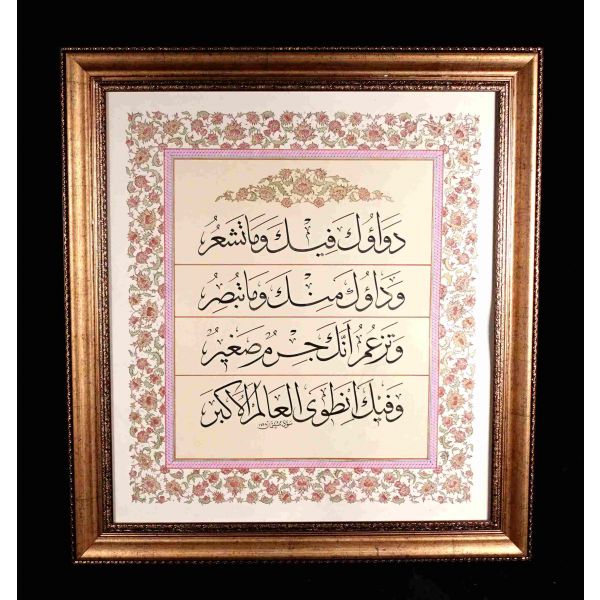 دواؤك فيك وما تشعر
وداؤك منك وما تبصر
وتزعم أنك جرم صغير
وفيك انطوى العالم الأكبر